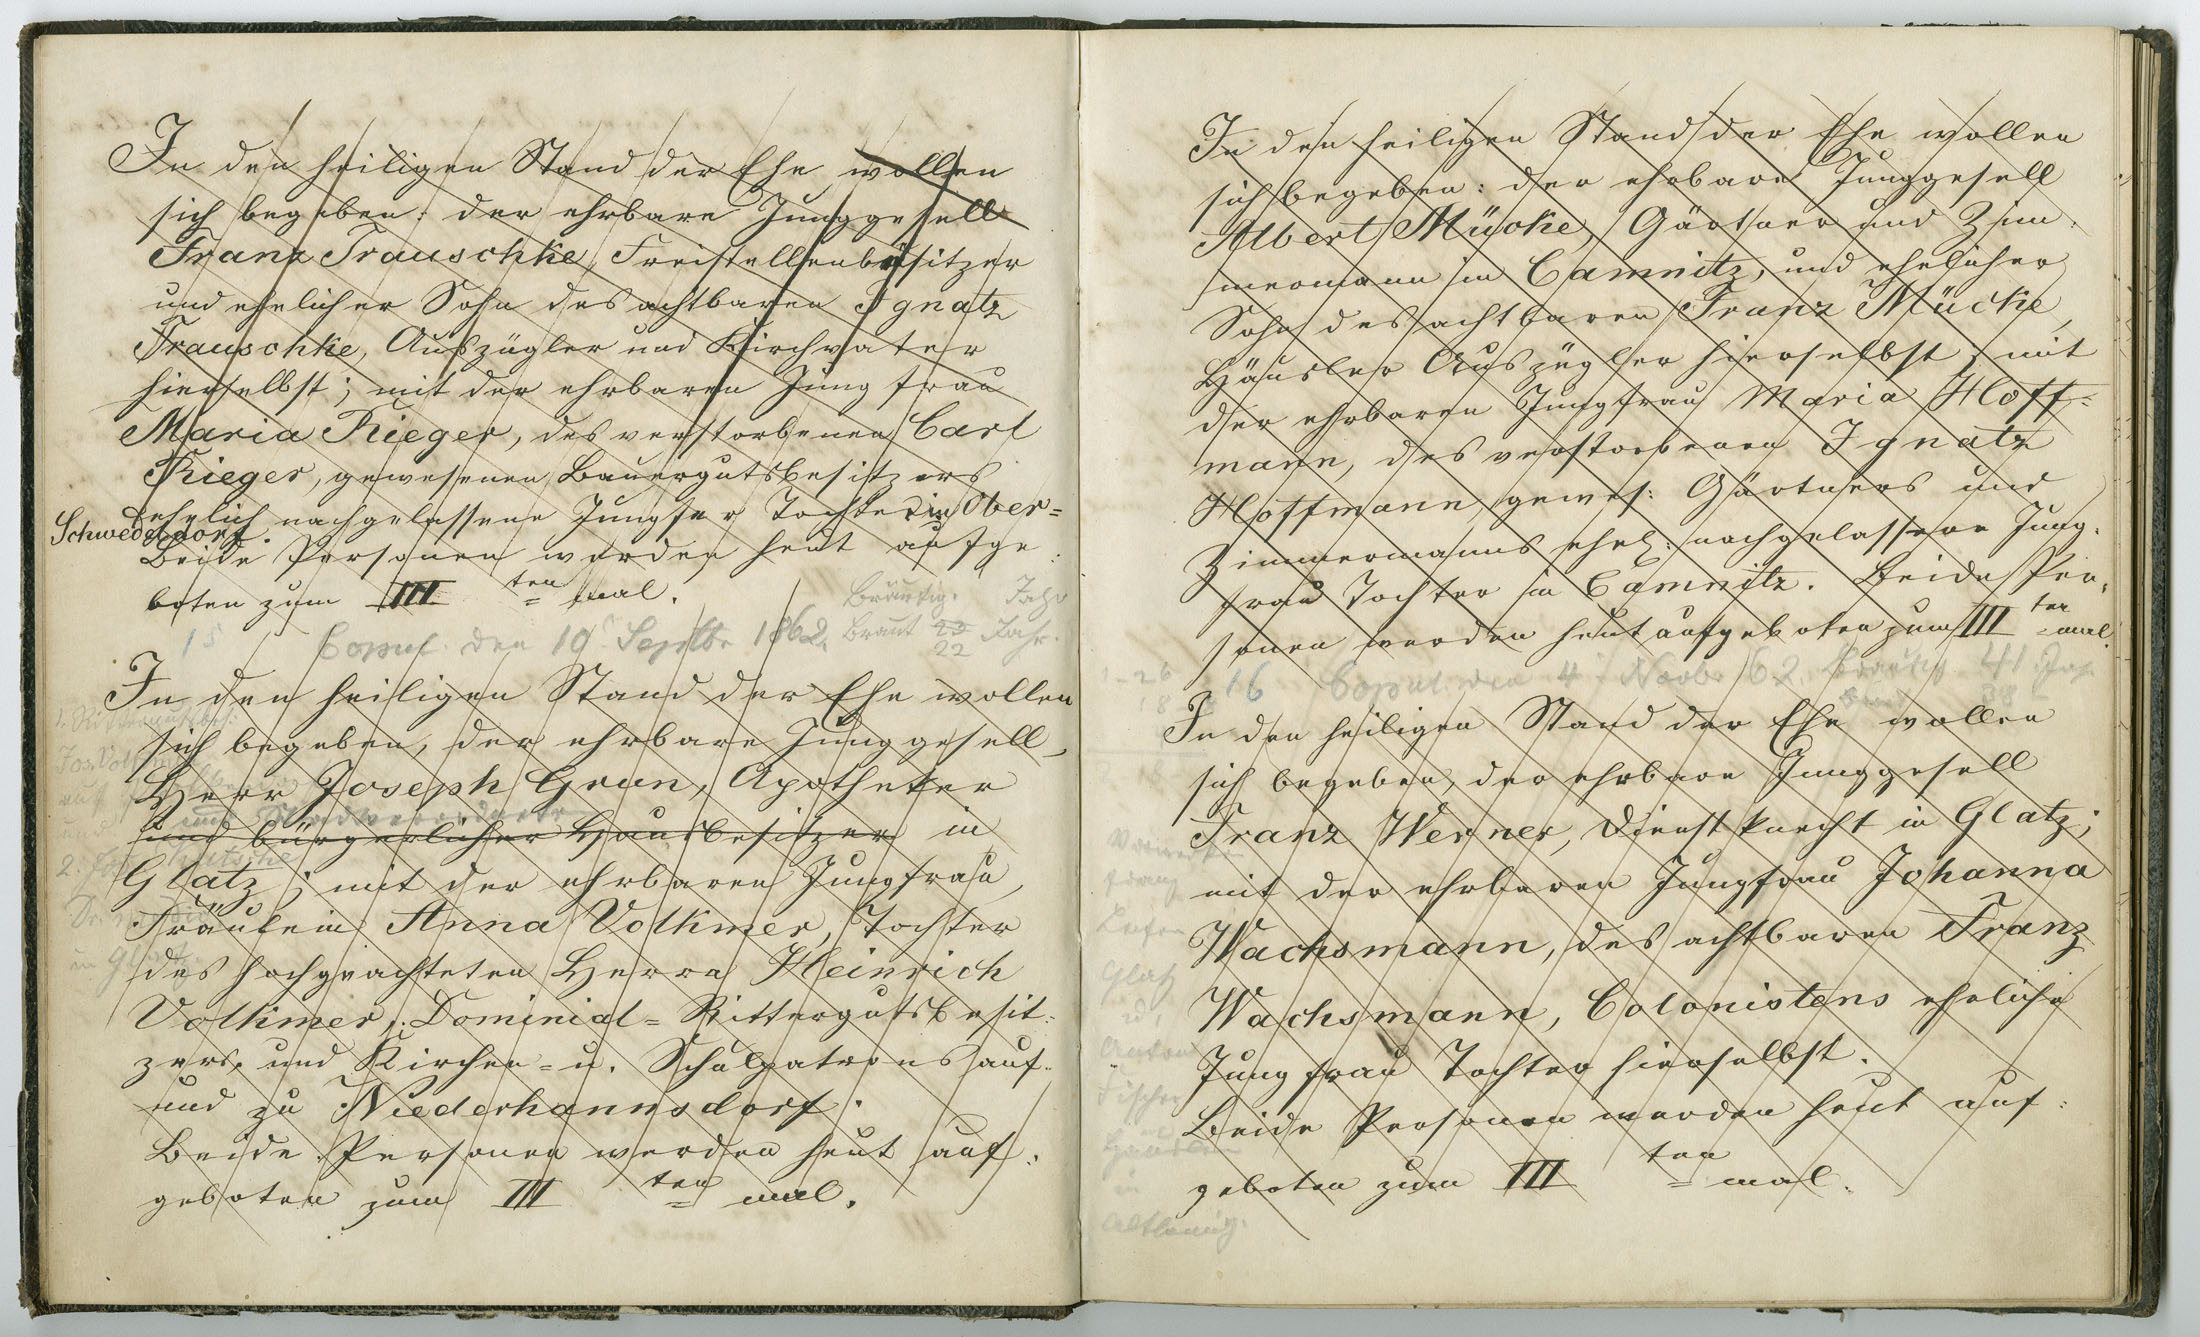 In den heiligen Stand der Ehe wollen
sich begeben: der ehrbare Junggesell
Franz Trauschke, Freistellenbesitzer
und ehelicher Sohn des achtbaren Ignatz
Trauschke, Auszügler und Kirchvater
hierselbst; mit der ehrbaren Jungfrau
Maria Rieger, des verstorbenen Carl
Rieger, gewesenen Bauergutsbesitzers
ehelich nachgelassene Jungfer Tochter in Ober=
Schwedeldorf.
Beide Personen werden heut aufge:
boten zum III ten mal.
Bräutig. Jahr
15 Copul. den 10. Septbr 1862. Braut 23 Jahr.
22
In den heiligen Stand der Ehe wollen
sich begeben, der ehrbare Junggesell,
Herr Joseph Grun, Apotheker
und Stadtverordneter
und bürgerlicher Hausbesitzer in
Glatz; mit der ehrbaren Jungfrau,
Fräulein Anna Volkmer, Tochter
des hochgeachteten Herrn Heinrich
Volkmer, Dominial=Rittergutsbesit:
zers, und Kirchen= u. Schulpatrons auf
und zu Niederhannsdorf.
Beide Personen werden heut auf:
geboten zum III ten mal.
In den heiligen Stand der Ehe wollen
sich begeben: der ehrbare Junggesell
Albert Mücke, Gärtner und Zim:
mermann in Camnitz, und ehelicher
Sohn des achtbaren Franz Mücke,
Häusler Auszügler hierselbst; mit
der ehrbaren Jungfrau Maria Hoff=
mann, des verstorbenen Ignatz
Hoffmann, gewes: Gärtners und
Zimmermanns ehel: nachgelassene Jung:
frau Tochter in Camnitz. Beide Per:
sonen werden heut aufgeboten zum III ten mal.
16 Copul. den 4. Novbr 62. Bräutig. 41 Jahr
In den heiligen Stand der Ehe wollen
sich begeben, der ehrbare Junggesell
Franz Werner, Dienstknecht in Glatz;
mit der ehrbaren Jungfrau Johanna
Wachsmann, des achtbaren Franz
Wachsmann, Colonistens eheliche
Jungfrau Tochter hierselbst.
Beide Personen werden heut auf:
geboten zum III ten mal.
Franz
Glatz
Anton
Fischer
Altlomnitz.